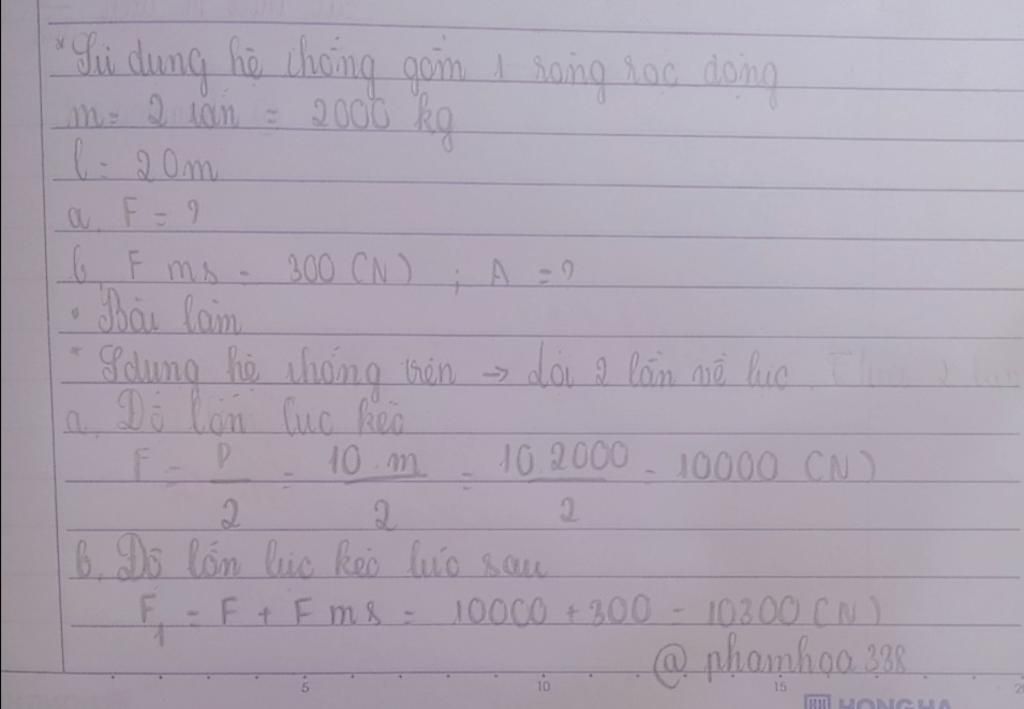 * Sử dụng hệ thống gồm 1 ròng rọc động
m = 2 tấn = 2000 kg
l = 20m
a, F = ?
b, F ms = 300 (N) ; A = ?
• Bài làm
* Sdụng hệ thống trên → lợi 2 lần về lực
a. Độ lớn lực kéo
F = P/2 = 10.m/2 = 10.2000/2 = 10000 (N)
b, Độ lớn lực kéo lúc sau
F1 = F + F ms = 10000 + 300 = 10300 (N)
@ phamhoa338
5 10 15
HONG HA